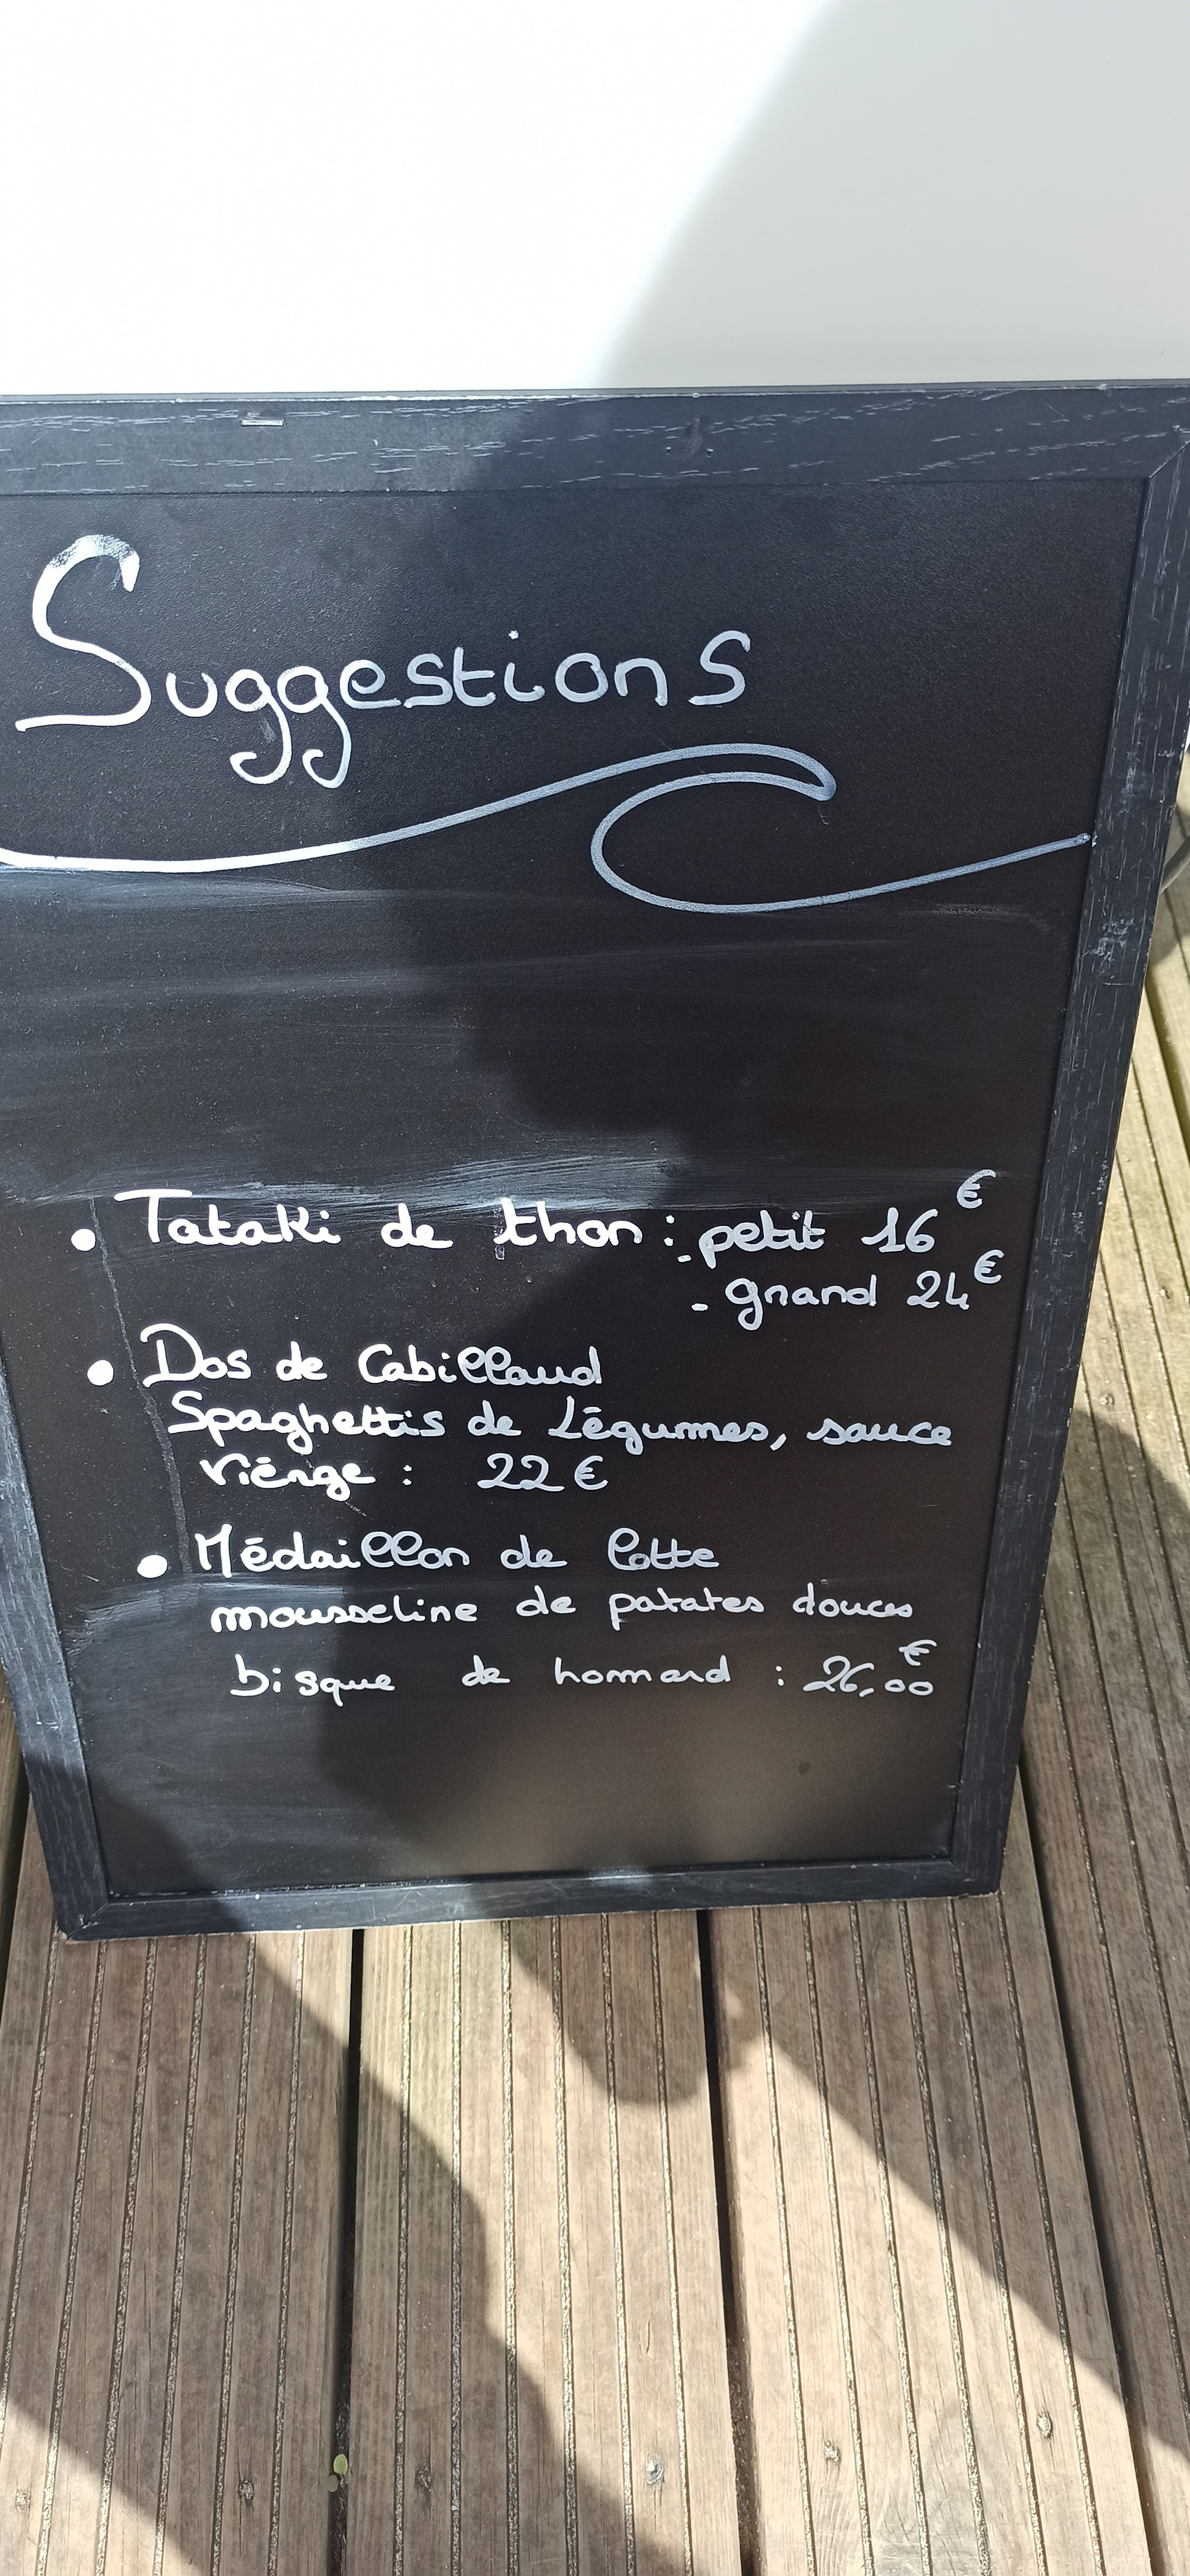 Suggestions
• Tataki de thon : - petit 16€
- grand 24€
• Dos de Cabillaud
Spaghettis de Légumes, sauce
viérge : 22€
• Médaillon de lotte
mousseline de patates douces
bisque de hommard : 26,00€